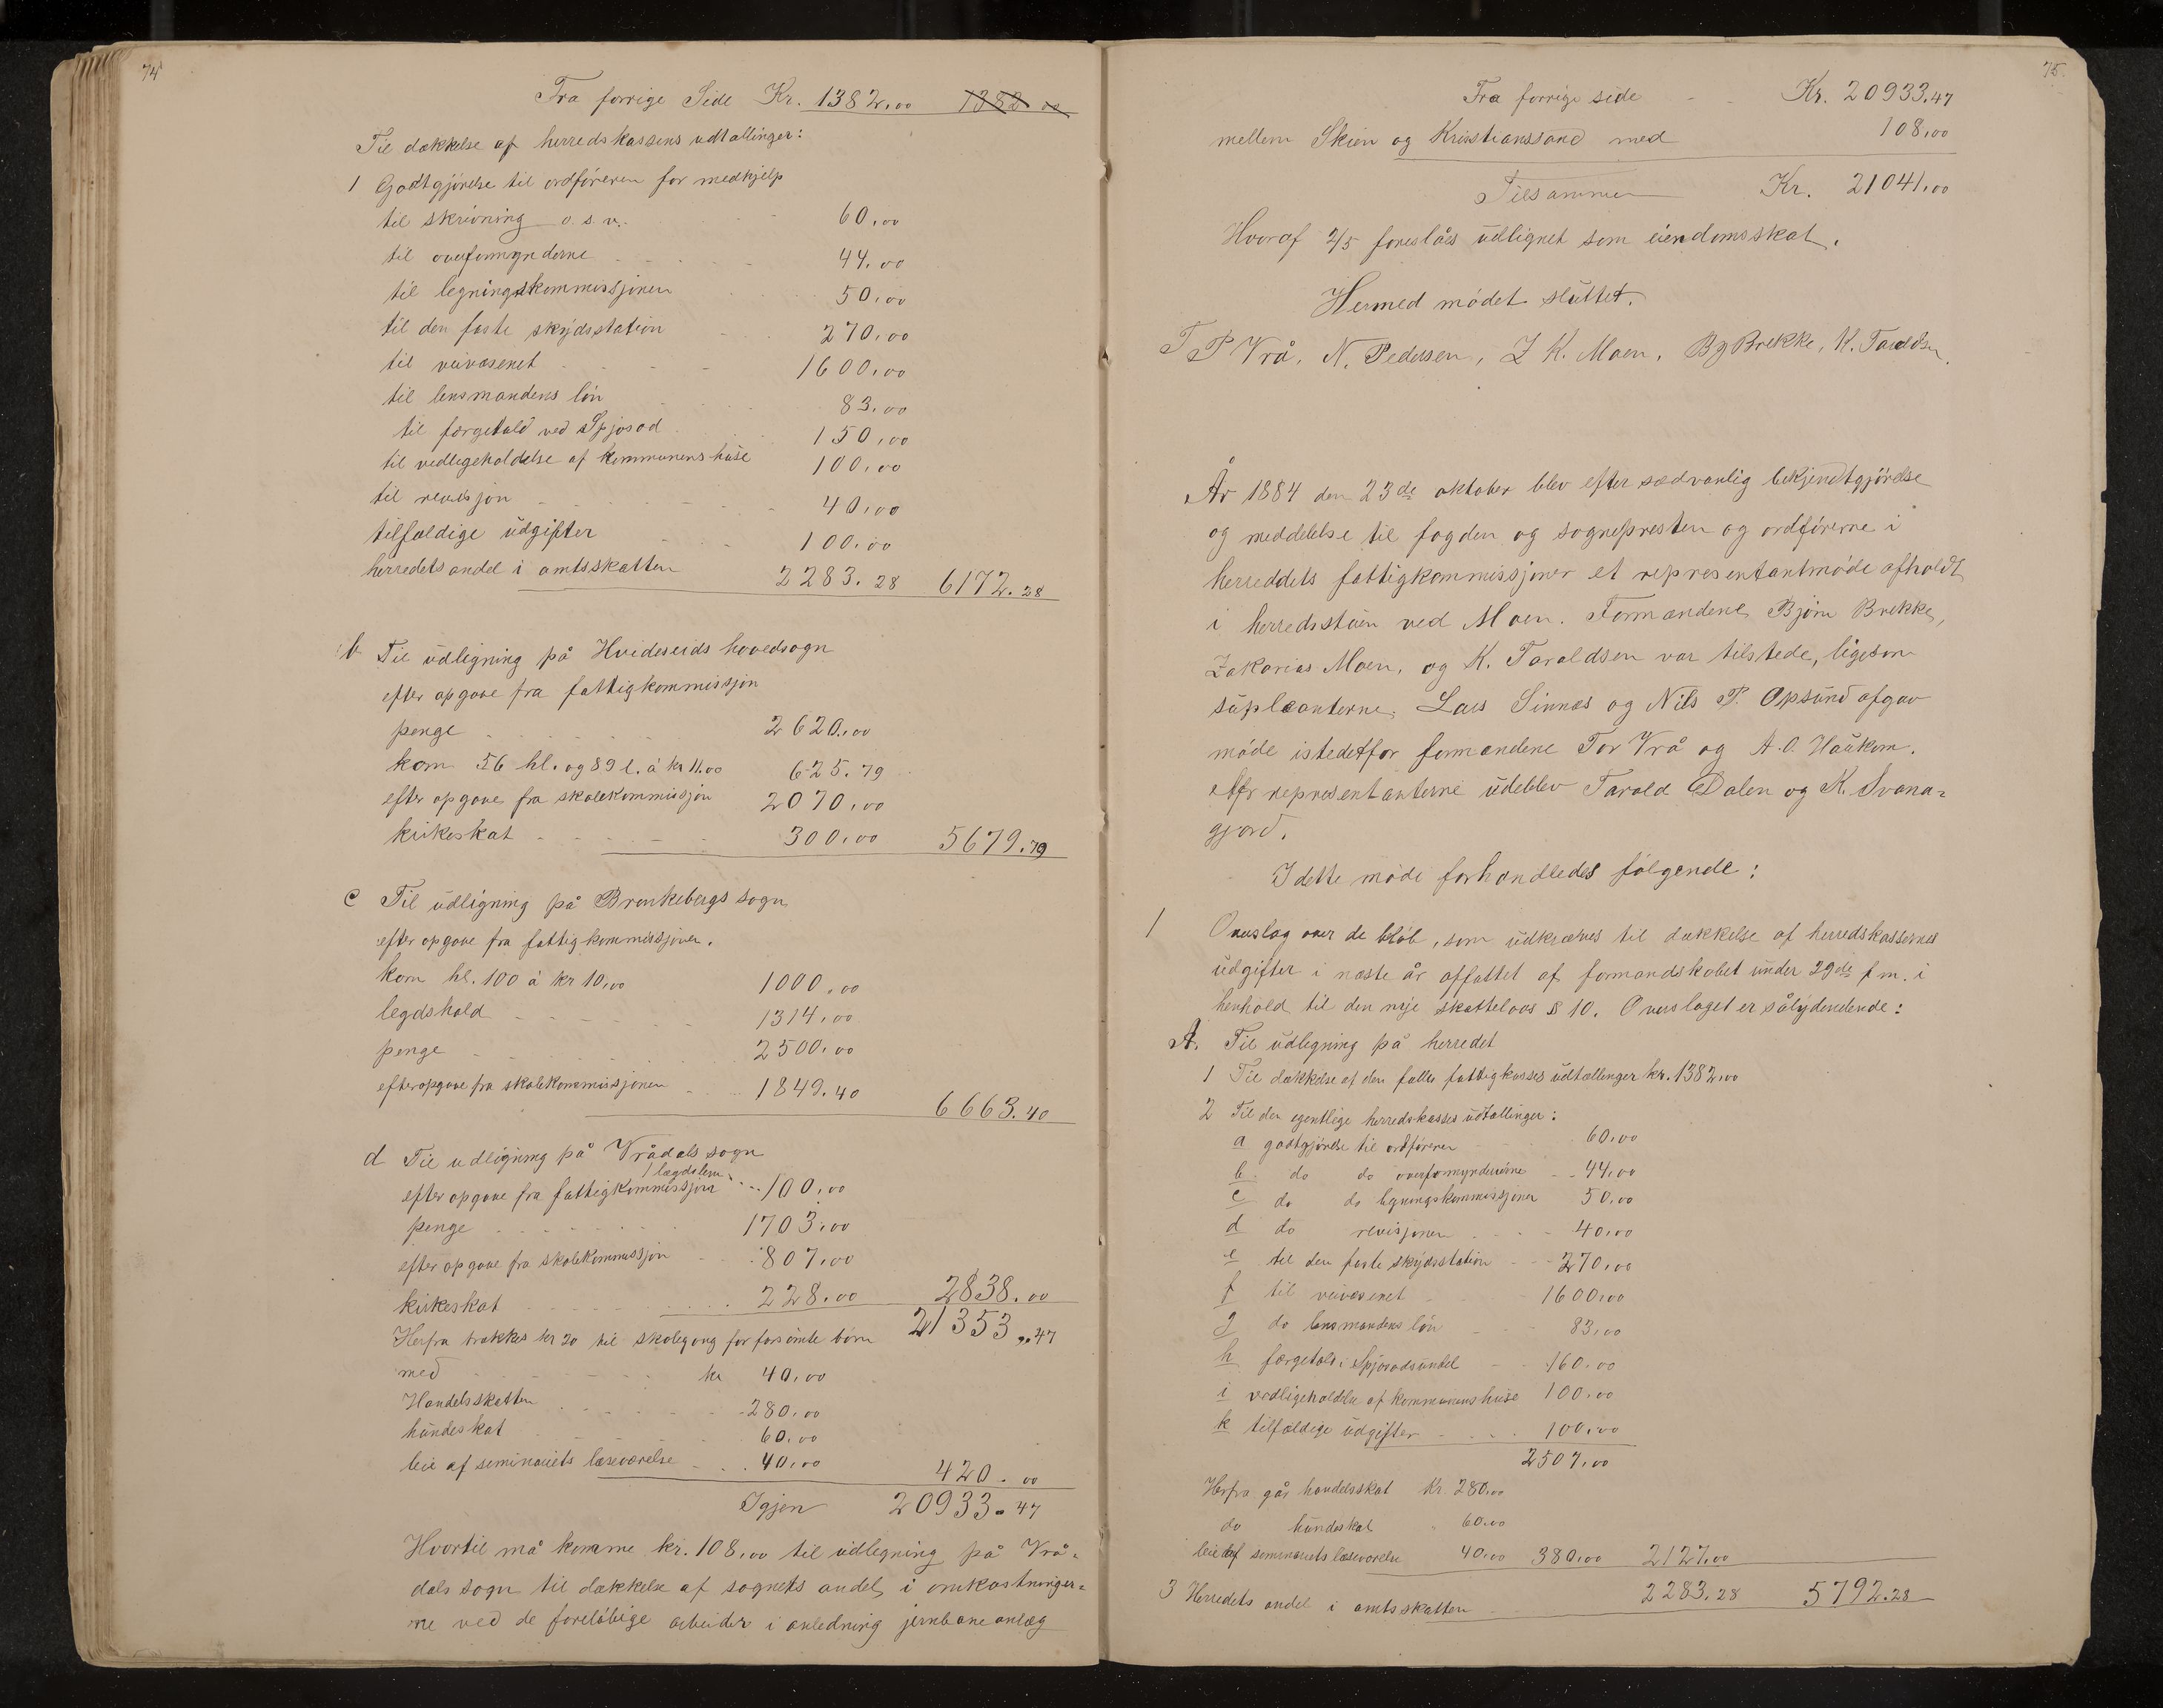 74
Fra forrige Side Kr. 1382.00 1382 00
Til dækkelse af herredskassens udtællinger:
1 Godtgjörelse til ordföreren for medhjelp
til skrivning o. s. v. 60.00
til overformynderne 44.00
til legningskommissjonen 50.00
til den faste skydsstation 270.00
til veivæsenet 1600.00
til lensmandens lön 83.00
til færgehold ved Spjosod 150.00
til vedligeholdelse af kommunens huse 100.00
til revisjon 40.00
tilfældige udgifter 100.00
herredets andel i amtsskatten 2283.28 6172.28
b Til udligning på Hvideseids hovedsogn
efter opgave fra fattigkommissjon
penge 2620.00
korn 56 hl. og 89 l. á kr 11.00 625.79
efter opgave fra skolekommissjon 2070.00
kirkeskat 300.00 5679.79
c Til udligning på Brunkebergs sogn
efter opgave fra fattigkommissjonen.
korn hl. 100 á kr 10.00 1000.00
legdshold 1314.00
penge 2500.00
efter opgave fra skolekommissjonen 1849.40
6663.40
d Til udligning på Vrådals sogn
1 lægdslem
efter opgave fra fattigkommissjon 100.00
penge 1703.00
efter opgave fra skolekommissjon 807.00
kirkeskat 228.00 2838.00
Herfra trækkes kr 20 til skolegang for forsömte börn 21353.47
med kr 40.00
Handelsskatten 280.00
hundeskat 60.00
leie af seminariets læseværelse 40.00
420.00
Igjen 20933.47
Hvortil må komme kr. 108.00 til udlegning på Vrå-
dals sogn til dækkelse af sognets andel i omkostninger-
ne ved de foreløbige arbeider i anledning jernbaneanlæg
75.
Fra forrige side Kr. 20933.47
mellem Skien og Kristianssand med 108.00
Tilsammen Kr. 21041.00
Hvoraf 2/5 foreslåes udlignet som eiendomsskat.
Hermed mödet sluttet.
T P Vrå, N. Pedersen, Z K. Moen, Bj Brekke, K. Taraldsen.
År 1884 den 23de oktober blev efter sædvanlig bekjendtgjörelse
og meddelelse til fogden og sognepresten og ordförerne i
herreddets fattigkommissjoner et representantmöde afholdt
i herredsstuen ved Moen. Formændene Björn Brekke,
Zakarias Moen, og K. Taraldsen var tilstede, ligesom
suppleanterne Lars Sinnes og Nils P. Opsund afgav
möde istedetfor formændene Tor Vrå og A. O. Haukom.
Af representanterne udeblev Tarald Dalen og K. Svana-
gjord.
I dette möde forhandledes fölgende:
1 Overslag over de belöb, som udkræves til dækkelse af herredskassernes
udgifter i næste år affattet af formandskabet under 29de f. m. i
henhold til den nye skattelovs § 10. Overslaget er sålydendende:
A. Til udligning på herredet
1 Til dækkelse af den fælles fattigkasses udtællinger kr. 1382.00
2 Til den egentlige herredskasses udtællinger:
a godtgjörelse til ordföreren 60.00
b. do do overformynderierne 44.00
c do do ligningskommissjoner 50.00
d do revisjonen 40.00
e til den faste skydsstation 270.00
f til veivæsenet 1600.00
g do lensmandens lön 83.00
h færgehold i Spjosodsundet 160.00
i vedligeholdelse af kommunens huse 100.00
k tilfældige udgifter 100.00
2507.00
Herfra går handelsskat Kr. 280.00
do hundeskat 60.00
leie af seminariets læseværelse 40.00 380.00 2127.00
3 Herredets andel i amtsskatten 2283.28 5792.28